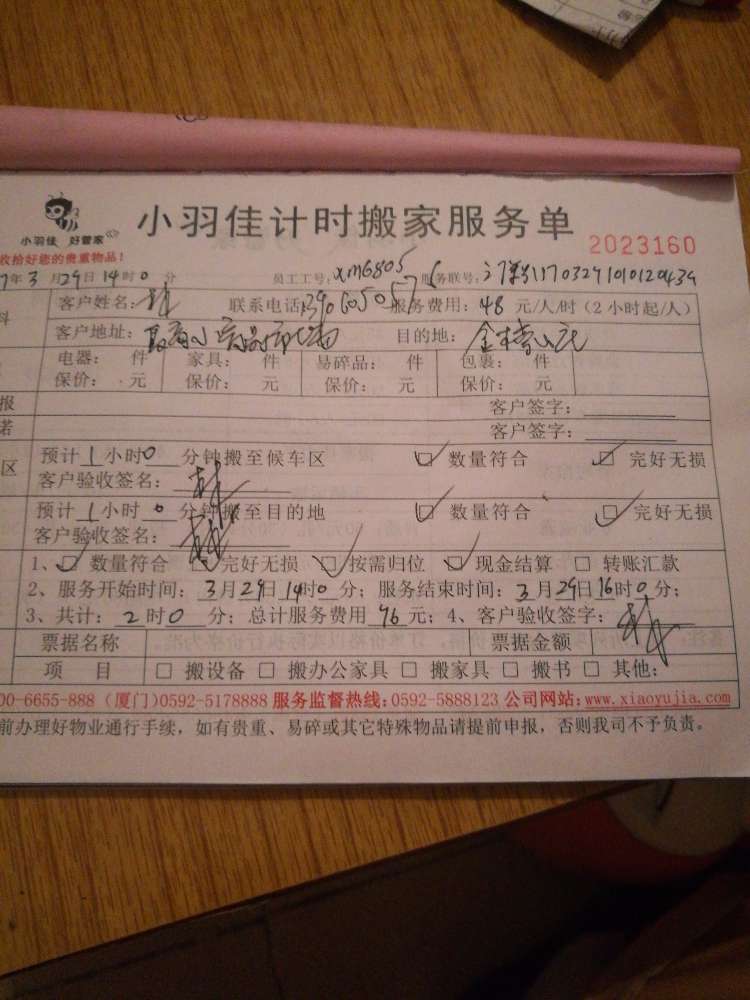 小羽佳 好管家
小羽佳计时搬家服务单
2023160
收拾好您的贵重物品!
7年3月29日14时0分 员工工号:xm6805 服务联号:
客户姓名:林 联系电话: 服务费用:48元/人/时(2小时起/人)
客户地址: 目的地:
电器: 件 家具: 件 易碎品: 件 包裹: 件
保价: 元 保价: 元 保价: 元 保价: 元
报 客户签字:
诺 客户签字:
区 预计1小时0分钟搬至候车区 □数量符合 □完好无损
客户验收签名:林
预计1小时0分钟搬至目的地 □数量符合 □完好无损
客户验收签名:林
1、□数量符合 □完好无损 □按需归位 □现金结算 □转账汇款
2、服务开始时间:3月29日14时0分;服务结束时间:3月29日16时0分;
3、共计:2时0分;总计服务费用96元;4、客户验收签字:林
票据名称 票据金额
项 目 □搬设备 □搬办公家具 □搬家具 □搬书 □其他:
00-6655-888(厦门)0592-5178888 服务监督热线:0592-5888123 公司网站:www.xiaoyujia.com
前办理好物业通行手续,如有贵重、易碎或其它特殊物品请提前申报,否则我司不予负责。